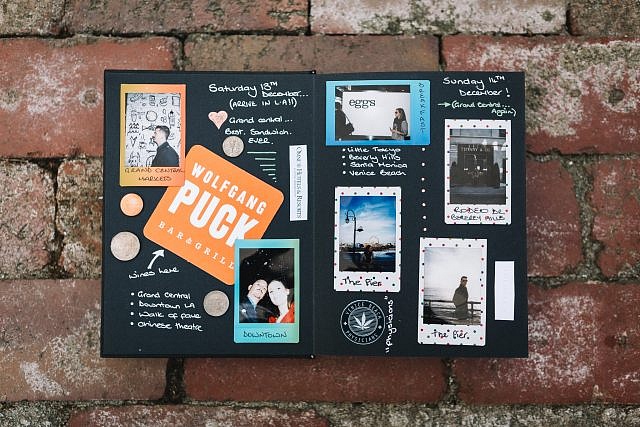 Saturday 13th
December...
(ARRIVE IN LA!!)
Grand central...
Best. Sandwich.
EVER.
GRAND CENTRAL
MARKETS
OMNI HOTELS & RESORTS
WOLFGANG
PUCK
BAR & GRILL
wines here
• Grand Central
• Downtown LA
• Walk of fame
• Chinese theatre
DOWNTOWN
eggs
BREAKFAST
• Little Tokyo
• Beverly Hills
• Santa Monica
• Venice Beach
The Pier
VENICE BEACH
PHYSICIANS
"Physicians"
Sunday 14TH
December!
(Grand Central...
Again)
RODEO DR.
BEVERLY HILLS
The Pier.